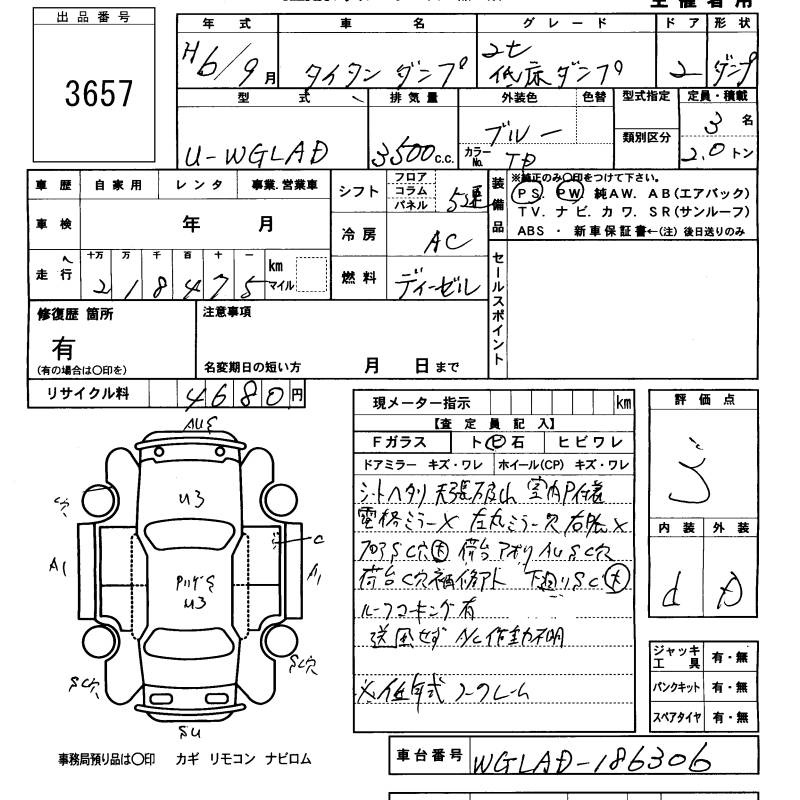 出品番号
3657
年式 車名 グレード ドア 形状
H6/9月 タイタン ダンプ 2t 低床ダンプ 2 ダンプ
型式 排気量 外装色 色替 型式指定 定員・積載
U-WGLAD 3500c.c. ブルー 類別区分 3名
カラーNo. 2.0トン
車歴 自家用 レンタ 事業.営業車
シフト フロア コラム パネル 5速
装備品
※純正のみ〇印をつけて下さい。
PS. PW. 純AW. AB(エアバック)
TV. ナビ. カワ. SR(サンルーフ)
ABS ・ 新車保証書←(注) 後日送りのみ
車検 年 月
冷房 AC
走行 十万 万 千 百 十 一
218475 km マイル
燃料 ディーゼル
セールスポイント
修復歴 箇所
有
(有の場合は〇印を)
注意事項
名変期日の短い方 月 日まで
リサイクル料 4680円
現メーター指示 km
【査定員記入】
Fガラス ト ビ 石 ヒビワレ
ドアミラー キズ・ワレ ホイール(CP) キズ・ワレ
シートヘタリ 天張ヤブレ 室内P付着
電格ミラー× 左丸ミラー欠
フロアSC穴大 荷台アオリAUSC穴
荷台C穴補修アト 下廻りSC大
ルーフコーキング有
送風せず A/C作動不明
※低年式 ノークレーム
評価点
内装 外装
d D
ジャッキ 工具 有・無
パンクキット 有・無
スペアタイヤ 有・無
AUS
U3
C穴
C
A1
A1
U3
SC穴
SC穴
SU
事務局預り品は〇印 カギ リモコン ナビロム
車台番号 WGLAD-186306